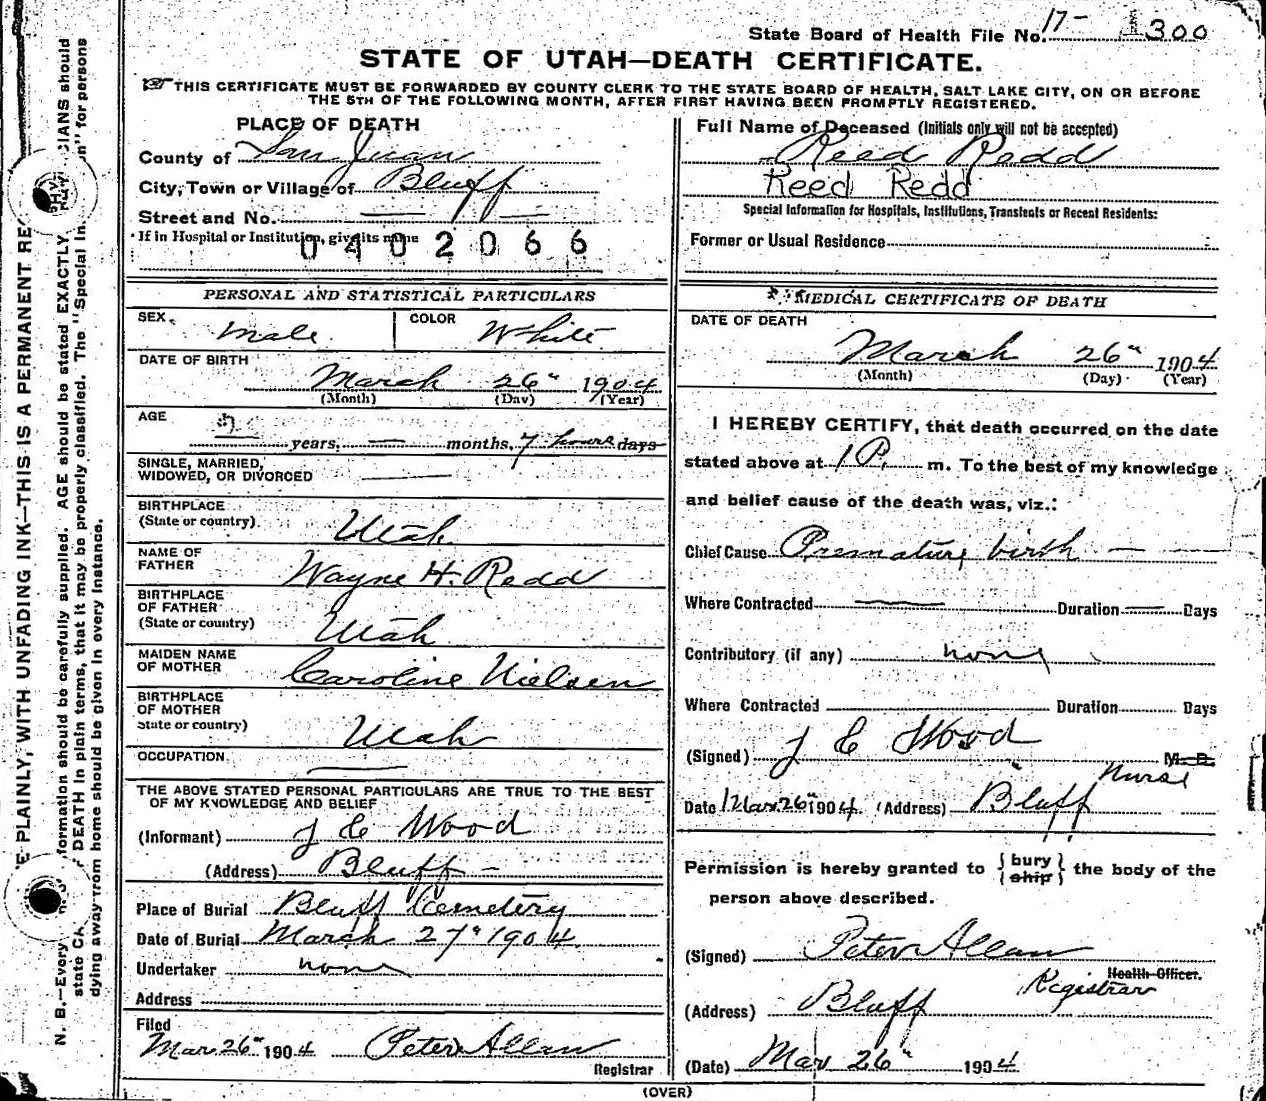 State Board of Health File No. 17- 300
STATE OF UTAH—DEATH CERTIFICATE.
THIS CERTIFICATE MUST BE FORWARDED BY COUNTY CLERK TO THE STATE BOARD OF HEALTH, SALT LAKE CITY, ON OR BEFORE
THE 5TH OF THE FOLLOWING MONTH, AFTER FIRST HAVING BEEN PROMPTLY REGISTERED.
PLACE OF DEATH
County of San Juan
City, Town or Village of Bluff
Street and No. — —
If in Hospital or Institution, give its name
0402066
Full Name of Deceased (Initials only will not be accepted)
Reed Redd
Reed Redd
Special Information for Hospitals, Institutions, Transients or Recent Residents:
Former or Usual Residence
PERSONAL AND STATISTICAL PARTICULARS
SEX. Male COLOR White
DATE OF BIRTH
March 26" 1904
(Month) (Day) (Year)
AGE
years, — months, 7 hours days
SINGLE, MARRIED,
WIDOWED, OR DIVORCED —
BIRTHPLACE
(State or country) Utah
NAME OF
FATHER Wayne H. Redd
BIRTHPLACE
OF FATHER
(State or country) Utah
MAIDEN NAME
OF MOTHER Caroline Nielsen
BIRTHPLACE
OF MOTHER
State or country) Utah
OCCUPATION —
THE ABOVE STATED PERSONAL PARTICULARS ARE TRUE TO THE BEST
OF MY KNOWLEDGE AND BELIEF
(Informant) J C Wood
(Address) Bluff -
Place of Burial Bluff Cemetery
Date of Burial March 27" 1904
Undertaker none
Address
Filed
Mar 26" 1904 Peter Allan
Registrar
MEDICAL CERTIFICATE OF DEATH
DATE OF DEATH
March 26" 1904
(Month) (Day) (Year)
I HEREBY CERTIFY, that death occurred on the date
stated above at 1 P. m. To the best of my knowledge
and belief cause of the death was, viz.:
Chief Cause Premature birth —
Where Contracted — Duration — Days
Contributory (if any) none
Where Contracted Duration Days
(Signed) J C Wood M. D.
Nurse
Date Mar 26" 1904 (Address) Bluff
Permission is hereby granted to {bury
ship} the body of the
person above described.
(Signed) Peter Allan
Health Officer.
Registrar
(Address) Bluff
(Date) Mar 26" 1904
(OVER)
E PLAINLY, WITH UNFADING INK—THIS IS A PERMANENT RE
N. B.—Every formation should be carefully supplied. AGE should be stated EXACTLY. CIANS should
state DEATH in plain terms, that it may be properly classified. The "Special In n" for persons
dying away from home should be given in every instance.